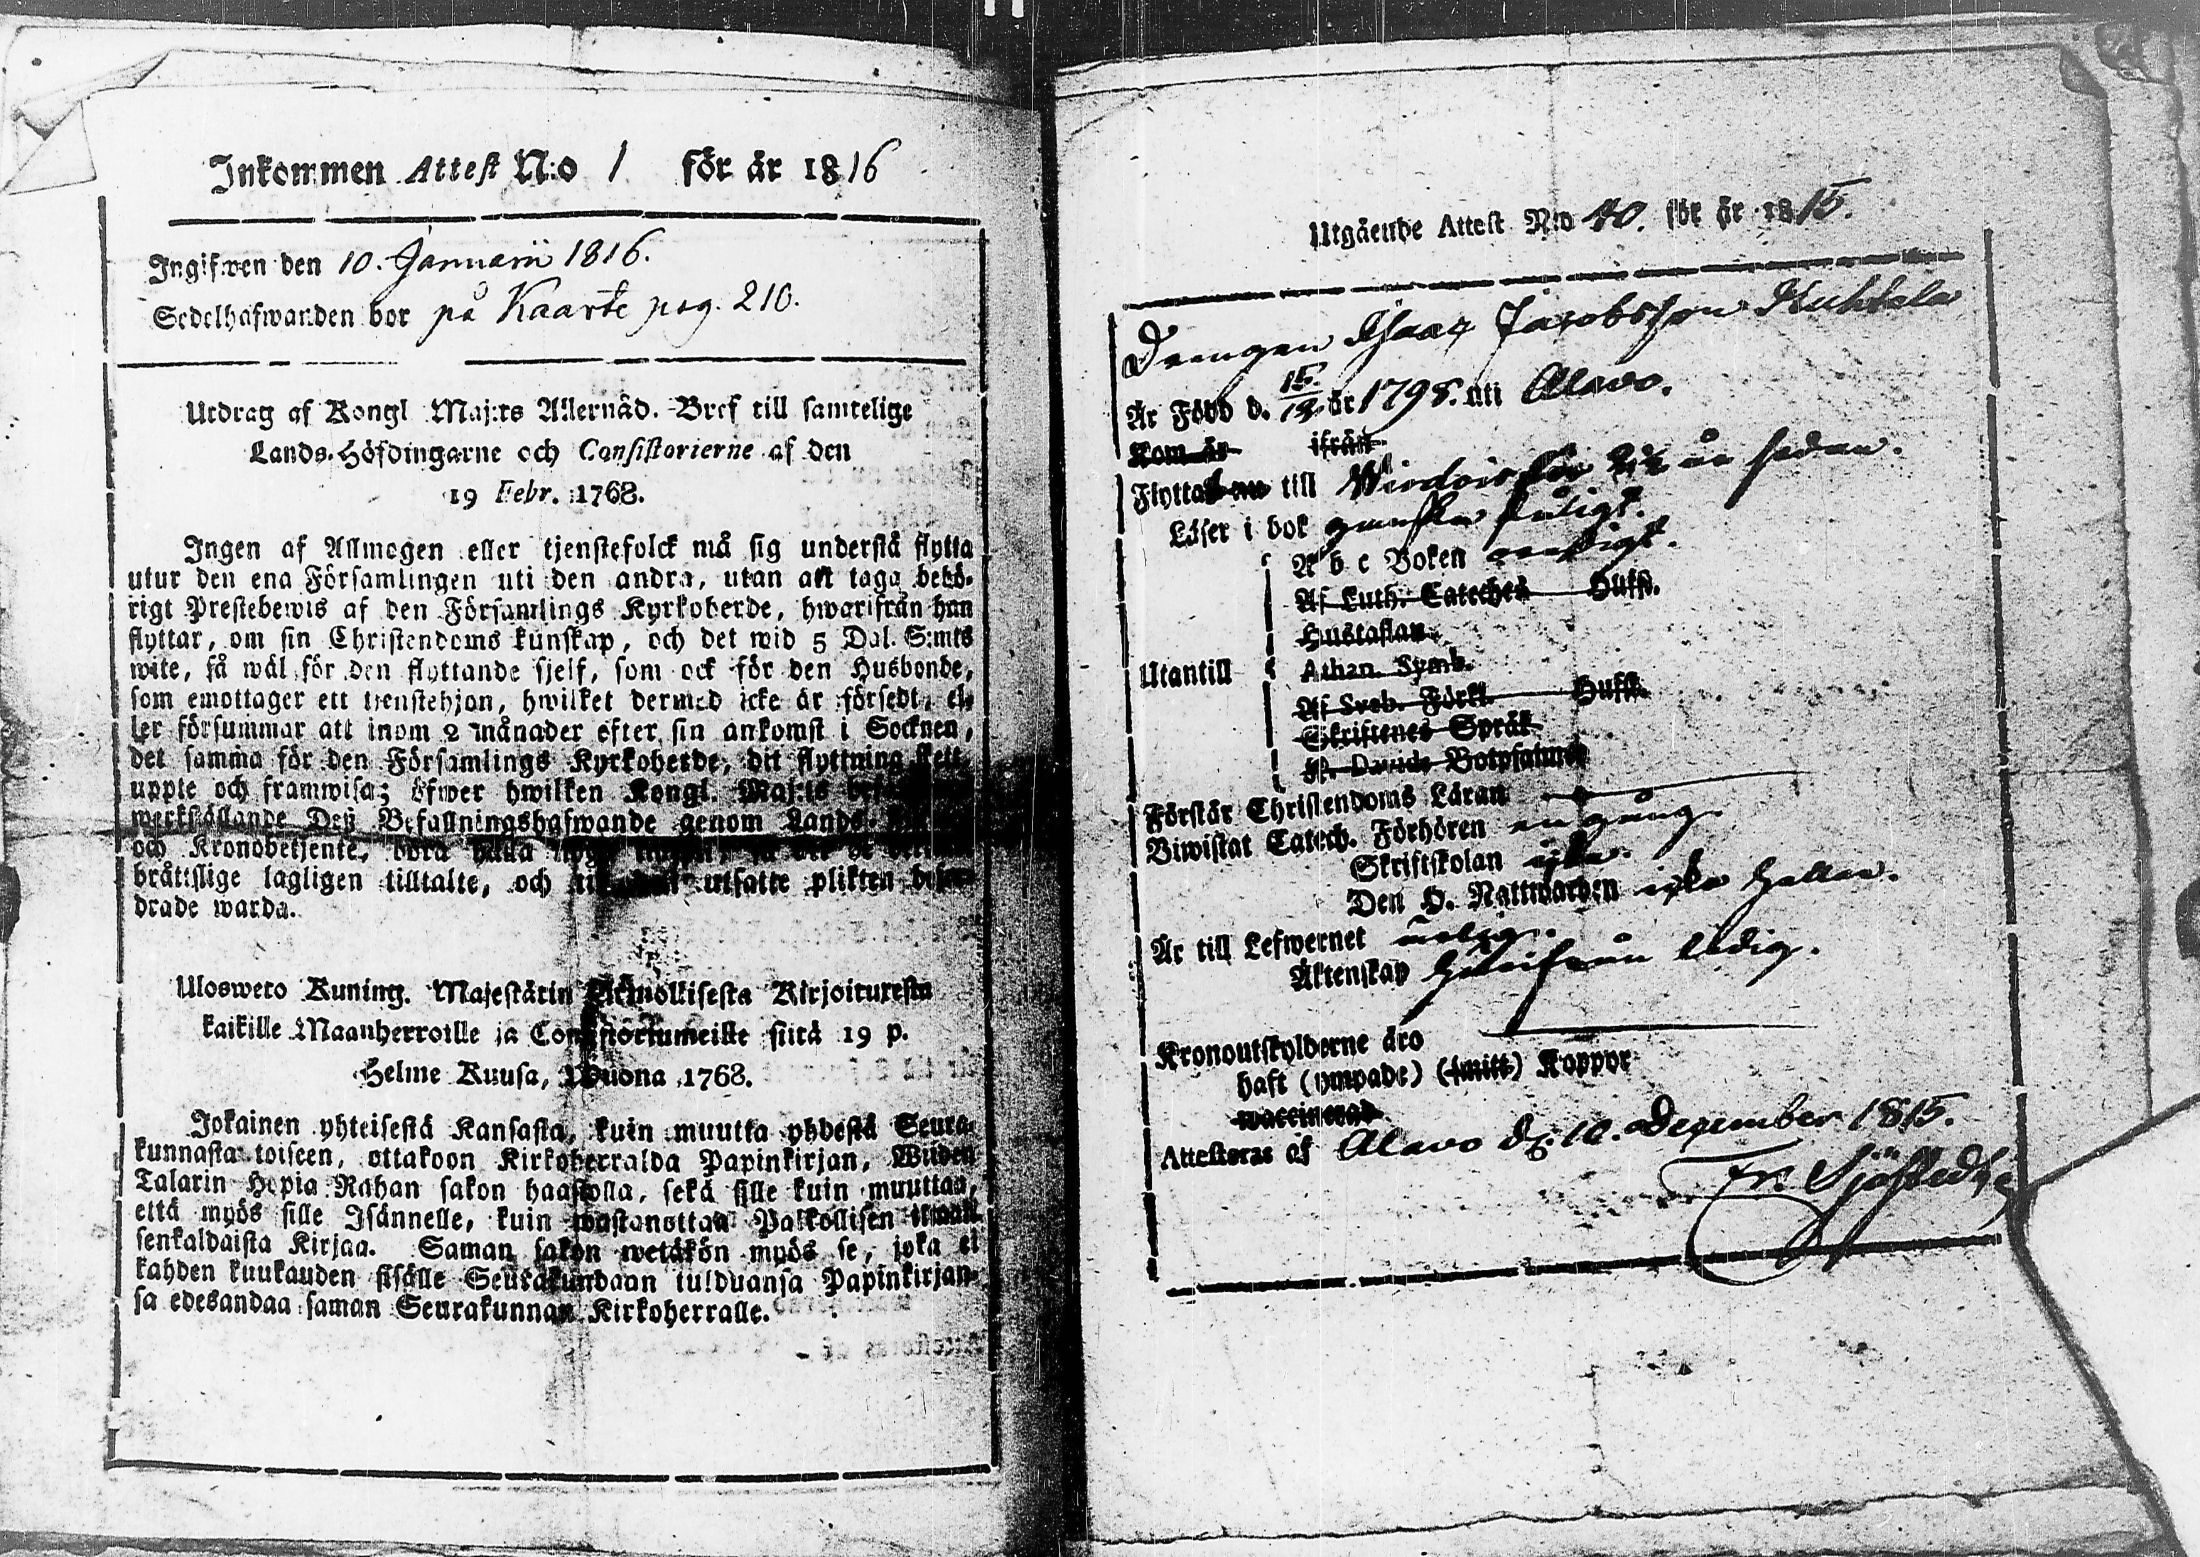 Inkommen Attest N:o 1 för år 1816
Ingifwen den 10. Januarii 1816.
Sedelhafwanden bor på Kaarte pag. 210.
Utdrag af Kongl Maj:ts Allernåd. Bref till samtelige
Lands-Höfdingarne och Consistorierne af den
19 Febr. 1768.
Ingen af Allmogen eller tjenstefolck må sig understå flytta
utur den ena Församlingen uti den andra, utan att taga behö-
rigt Prestebewis af den Församlings Kyrkoherde, hwarifrån han
flyttar, om sin Christendoms kunskap, och det wid 5 Dal. S:mts
wite, så wäl för den flyttande sjelf, som ock för den Husbonde,
som emottager ett tjenstehjon, hwilket dermed icke är försedt, el-
ler försummar att inom 2 månader efter sin ankomst i Socknen,
det samma för den Församlings Kyrkoherde, dit flyttning skett
uppte och framwisa; öfwer hwilken Kongl. Maj:ts
werkställande Deß Befallningshafwande genom Lands-
och Kronobetjente, böra hålla
brättslige lagligen tilltalte, och utsatte plikten befor-
drade warda.
Ulosweto Kuning. Majestätin Armollisesta Kirjoituxesta
kaikille Maanherroille ja Consistoriumeille siitä 19 p.
Helme Kuusa, Wuona 1768.
Jokainen yhteisestä Kansasta, kuin muutta yhdestä Seura-
kunnasta toiseen, ottakoon Kirkoherralda Papinkirjan, Wiiden
Talarin Hopia Rahan sakon haastolla, sekä sille kuin muuttaa,
että myös sille Isännelle, kuin wastanottaa Palkollisen ilman
senkaldaista Kirjaa. Saman sakon wetäkön myös se, joka ei
kahden kuukauden sisälle Seurakundaan tulduansa Papinkirjan-
sa edesandaa saman Seurakunnan Kirkoherralle.
Utgående Attest N:o 40. för år 1815.
Drengen Isaac Jacobsson Kuhtala
Är Född d. 15/12 år 1798. uti Alavo.
Kom år ifrån
Flytta till Wirdois för 2 1/2 år sedan.
Läser i bok ganska
A b c Boken
Af Luth. Cateches Hufst.
Hustaflan
Utantill Athan. Symb.
Af Sveb. Förkl. Hufst.
Skriftenes Språk
K. Davids Botpsalmer
Förstår Christendoms Läran
Biwistat Catech. Förhören en gång.
Skriftskolan icke.
Den H. Nattwarden icke heller.
Är till Lefwernet
Äktenskap härifrån ledig.
Kronoutskylderne äro
haft (ympade) (smitt) Koppor
waccinerad
Attesteras af Alavo d. 10. December 1815.
Fr. Sjöstedt